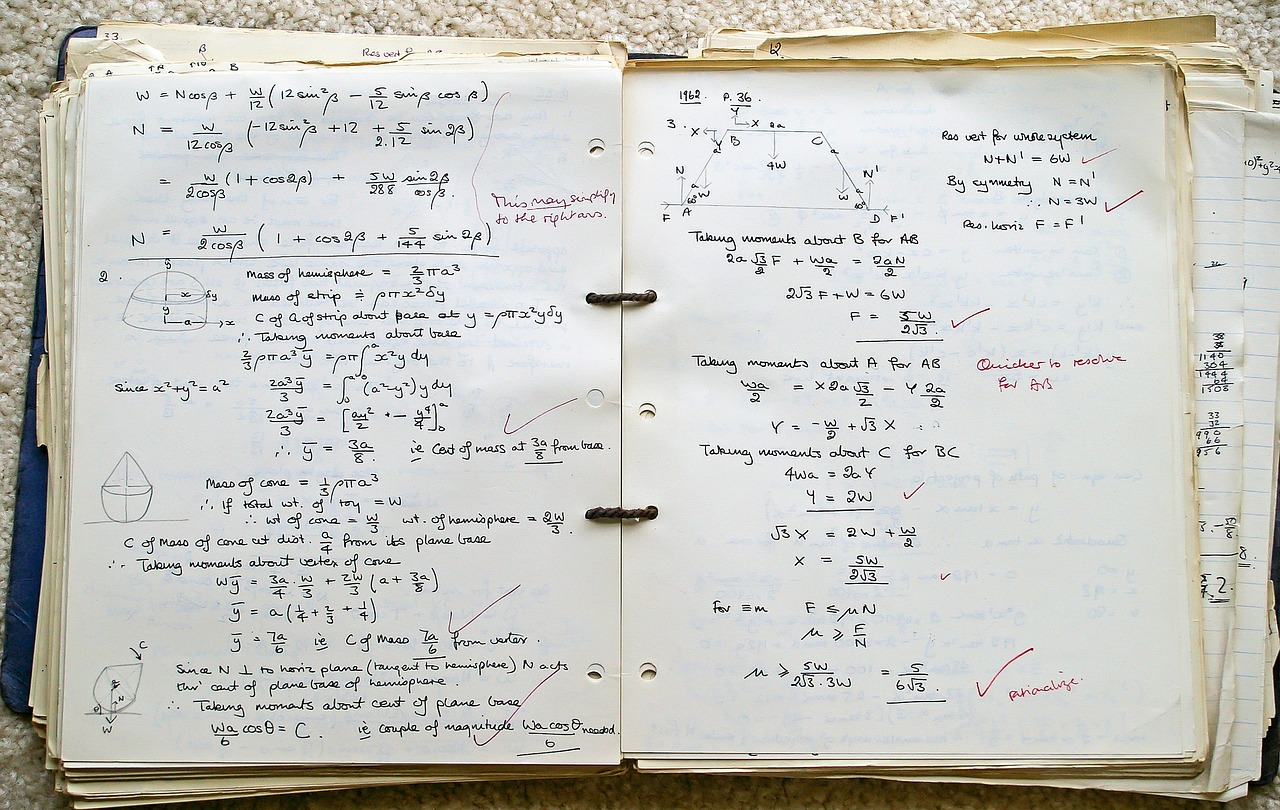 33.
β
Res vert
A B
W = Ncosβ + W/12 (12 sin²β − 5/12 sinβ cosβ)
N = W/12cosβ (−12sin²β + 12 + 5/2.12 sin2β)
= W/2cosβ (1 + cos2β) + 5W/288 sin2β/cosβ.
This may simplify
to the right ans.
N = W/2cosβ (1 + cos2β + 5/144 sin2β)
2.
y
x δy
y
a x
Mass of hemisphere = 2/3 πa³
Mass of strip ≑ ρπx²δy
C of G of strip about base at y = ρπx²yδy
∴ Taking moments about base
2/3 ρπa³ȳ = ρπ∫₀ᵃ x²y dy
Since x²+y²=a² 2a³ȳ/3 = ∫₀ᵃ (a²−y²)y dy
2a³ȳ/3 = [ay²/2 − y⁴/4]₀ᵃ
∴ ȳ = 3a/8 ie Cent of mass at 3a/8 from base.
Mass of cone = 1/3 ρπa³
∴ If total wt. of toy = W
∴ wt of cone = W/3 wt. of hemisphere = 2W/3.
C of Mass of cone at dist. a/4 from its plane base
∴ Taking moments about vertex of cone
Wȳ = 3a/4 . W/3 + 2W/3 (a + 3a/8)
ȳ = a(1/4 + 2/3 + 1/4)
ȳ = 7a/6 ie C of Mass 7a/6 from vertex.
C
N
θ
W
Since N ⊥ to horiz plane (tangent to hemisphere) N acts
thro' cent of plane base of hemisphere.
∴ Taking moments about cent of plane base
Wa/6 cosθ = C. ie couple of magnitude Wa cosθ/6 needed.
1962. P. 36.
3.
Y
X X 2a
Y B C
a 4W a
N a W W a N'
60° 60°
F A D F'
Res vert for whole system
N+N' = 6W
By symmetry N = N'
∴ N = 3W
Res. horiz F = F'
Taking moments about B for AB
2a √3/2 F + Wa/2 = 2aN/2
2√3 F + W = 6W
F = 5W/2√3.
Taking moments about A for AB
Quicker to resolve
for AB
Wa/2 = X2a√3/2 − Y 2a/2
Y = −W/2 + √3 X
Taking moments about C for BC
4Wa = 2aY
Y = 2W
√3 X = 2W + W/2
X = 5W/2√3
For ≡m F ≤ μN
μ ≥ F/N
μ ≥ 5W/2√3.3W = 5/6√3.
rationalize.
38
38
1140
304
1444
64
1508
33
32
990
66
956
8.
2.